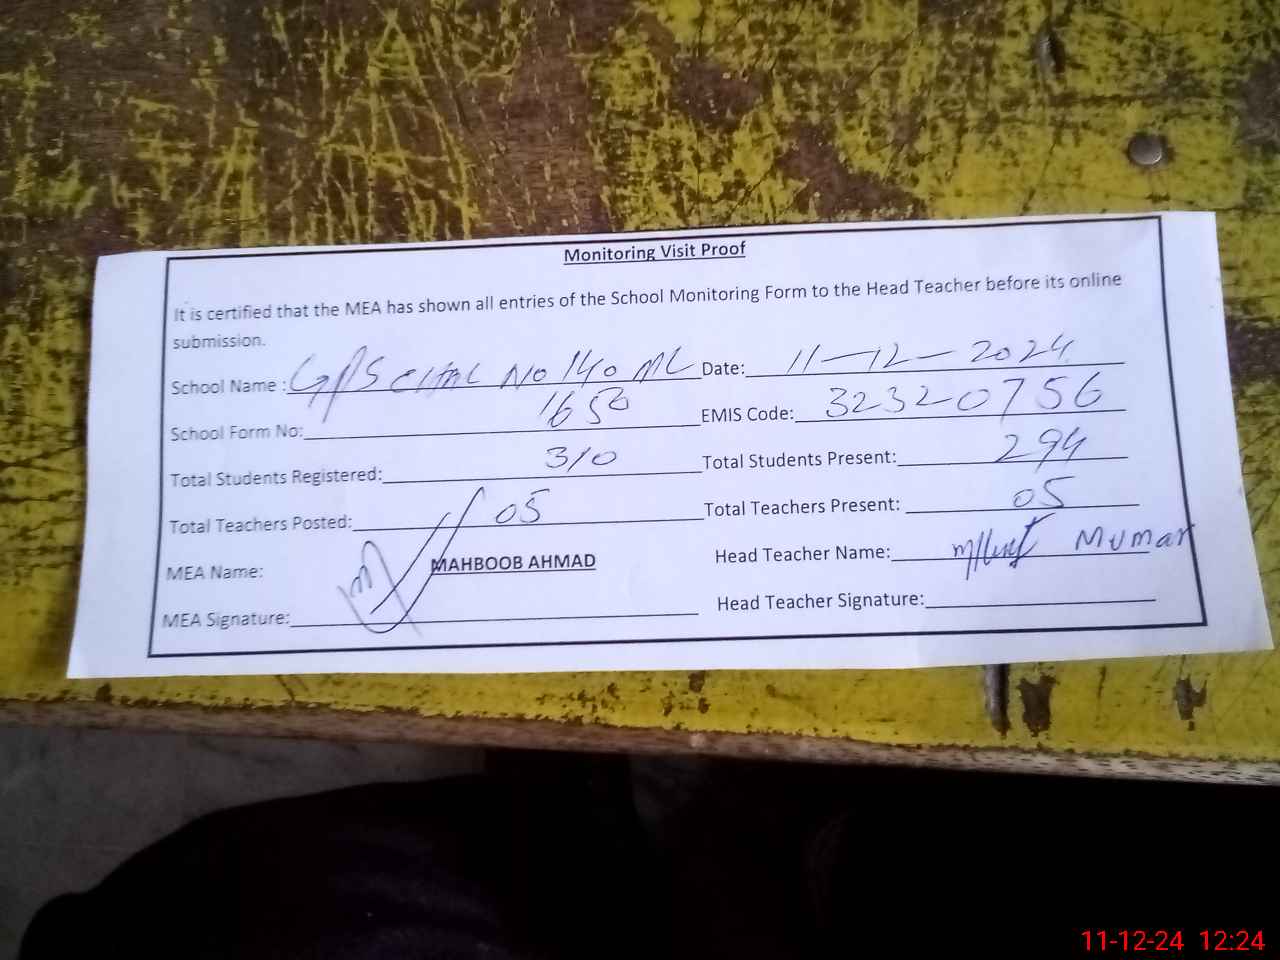 Monitoring Visit Proof
It is certified that the MEA has shown all entries of the School Monitoring Form to the Head Teacher before its online
submission.
School Name : GPS No 140 ML Date: 11-12-2024
School Form No: 1650 EMIS Code: 32320756
Total Students Registered: 310 Total Students Present: 294
Total Teachers Posted: 05 Total Teachers Present: 05
MEA Name: MAHBOOB AHMAD Head Teacher Name: Mumar
MEA Signature: Head Teacher Signature:
11-12-24 12:24